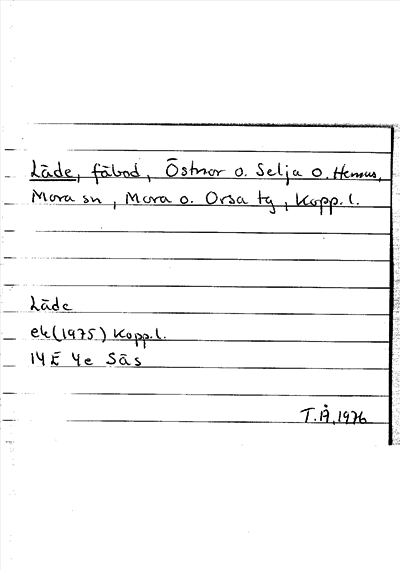 Läde, fäbod, Östnor o. Selja o. Hemus,
Mora sn, Mora o. Orsa tg, Kopp. l.
Läde
ek (1975) Kopp. l.
14 E 4e Sås
T.Å, 1976